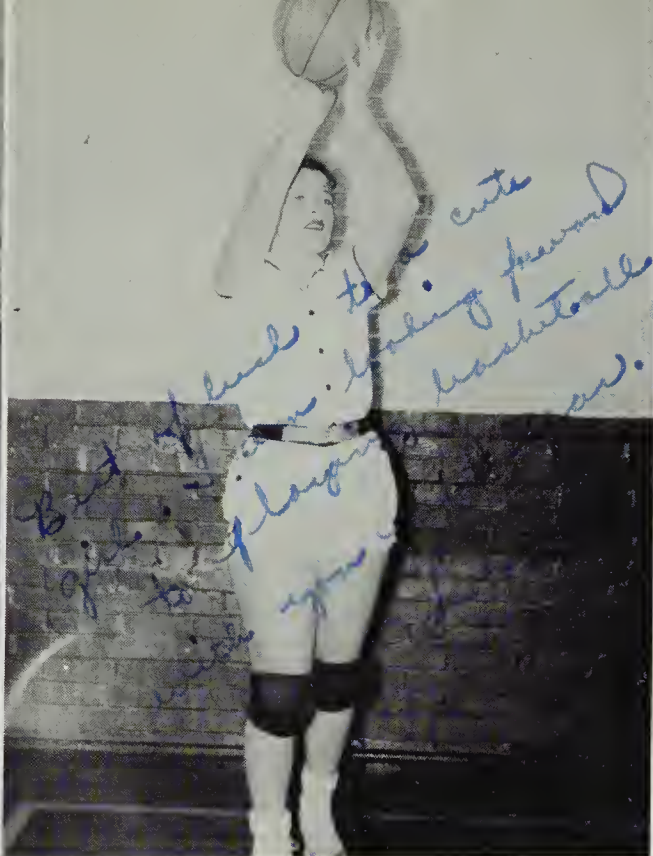 Best of luck to a cute
girl. I am looking forward
to playing basketball
with you